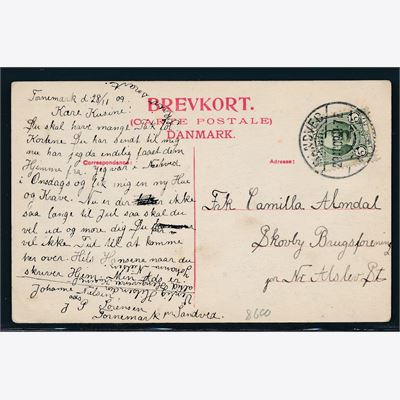 Fornemark d 28/11 09.
Kære Kusine!
Du skal have mange Tak for
Kortene Du har sendt til mig
nu har jeg da endelig faaet dem
Hjemme fra. jeg var i Nestved
i Onsdags og fik mig en ny Hue
og Krave. Nu er der ikke
saa længe til Jul saa skal du
vel ud og more dig Du
vel ikke Tid til at komme
her over. Hils Hansene naar du
skriver Hjem. Min Ads er
Johanne Nielsen
ads.
J P Sørensen
Fornemark pr Sandved.
BREVKORT.
(CARTE POSTALE)
DANMARK.
Correspondance:
Adresse:
Frk Camilla Almdal
Skovby Brugsforening
pr Nr. Alslev St
8600